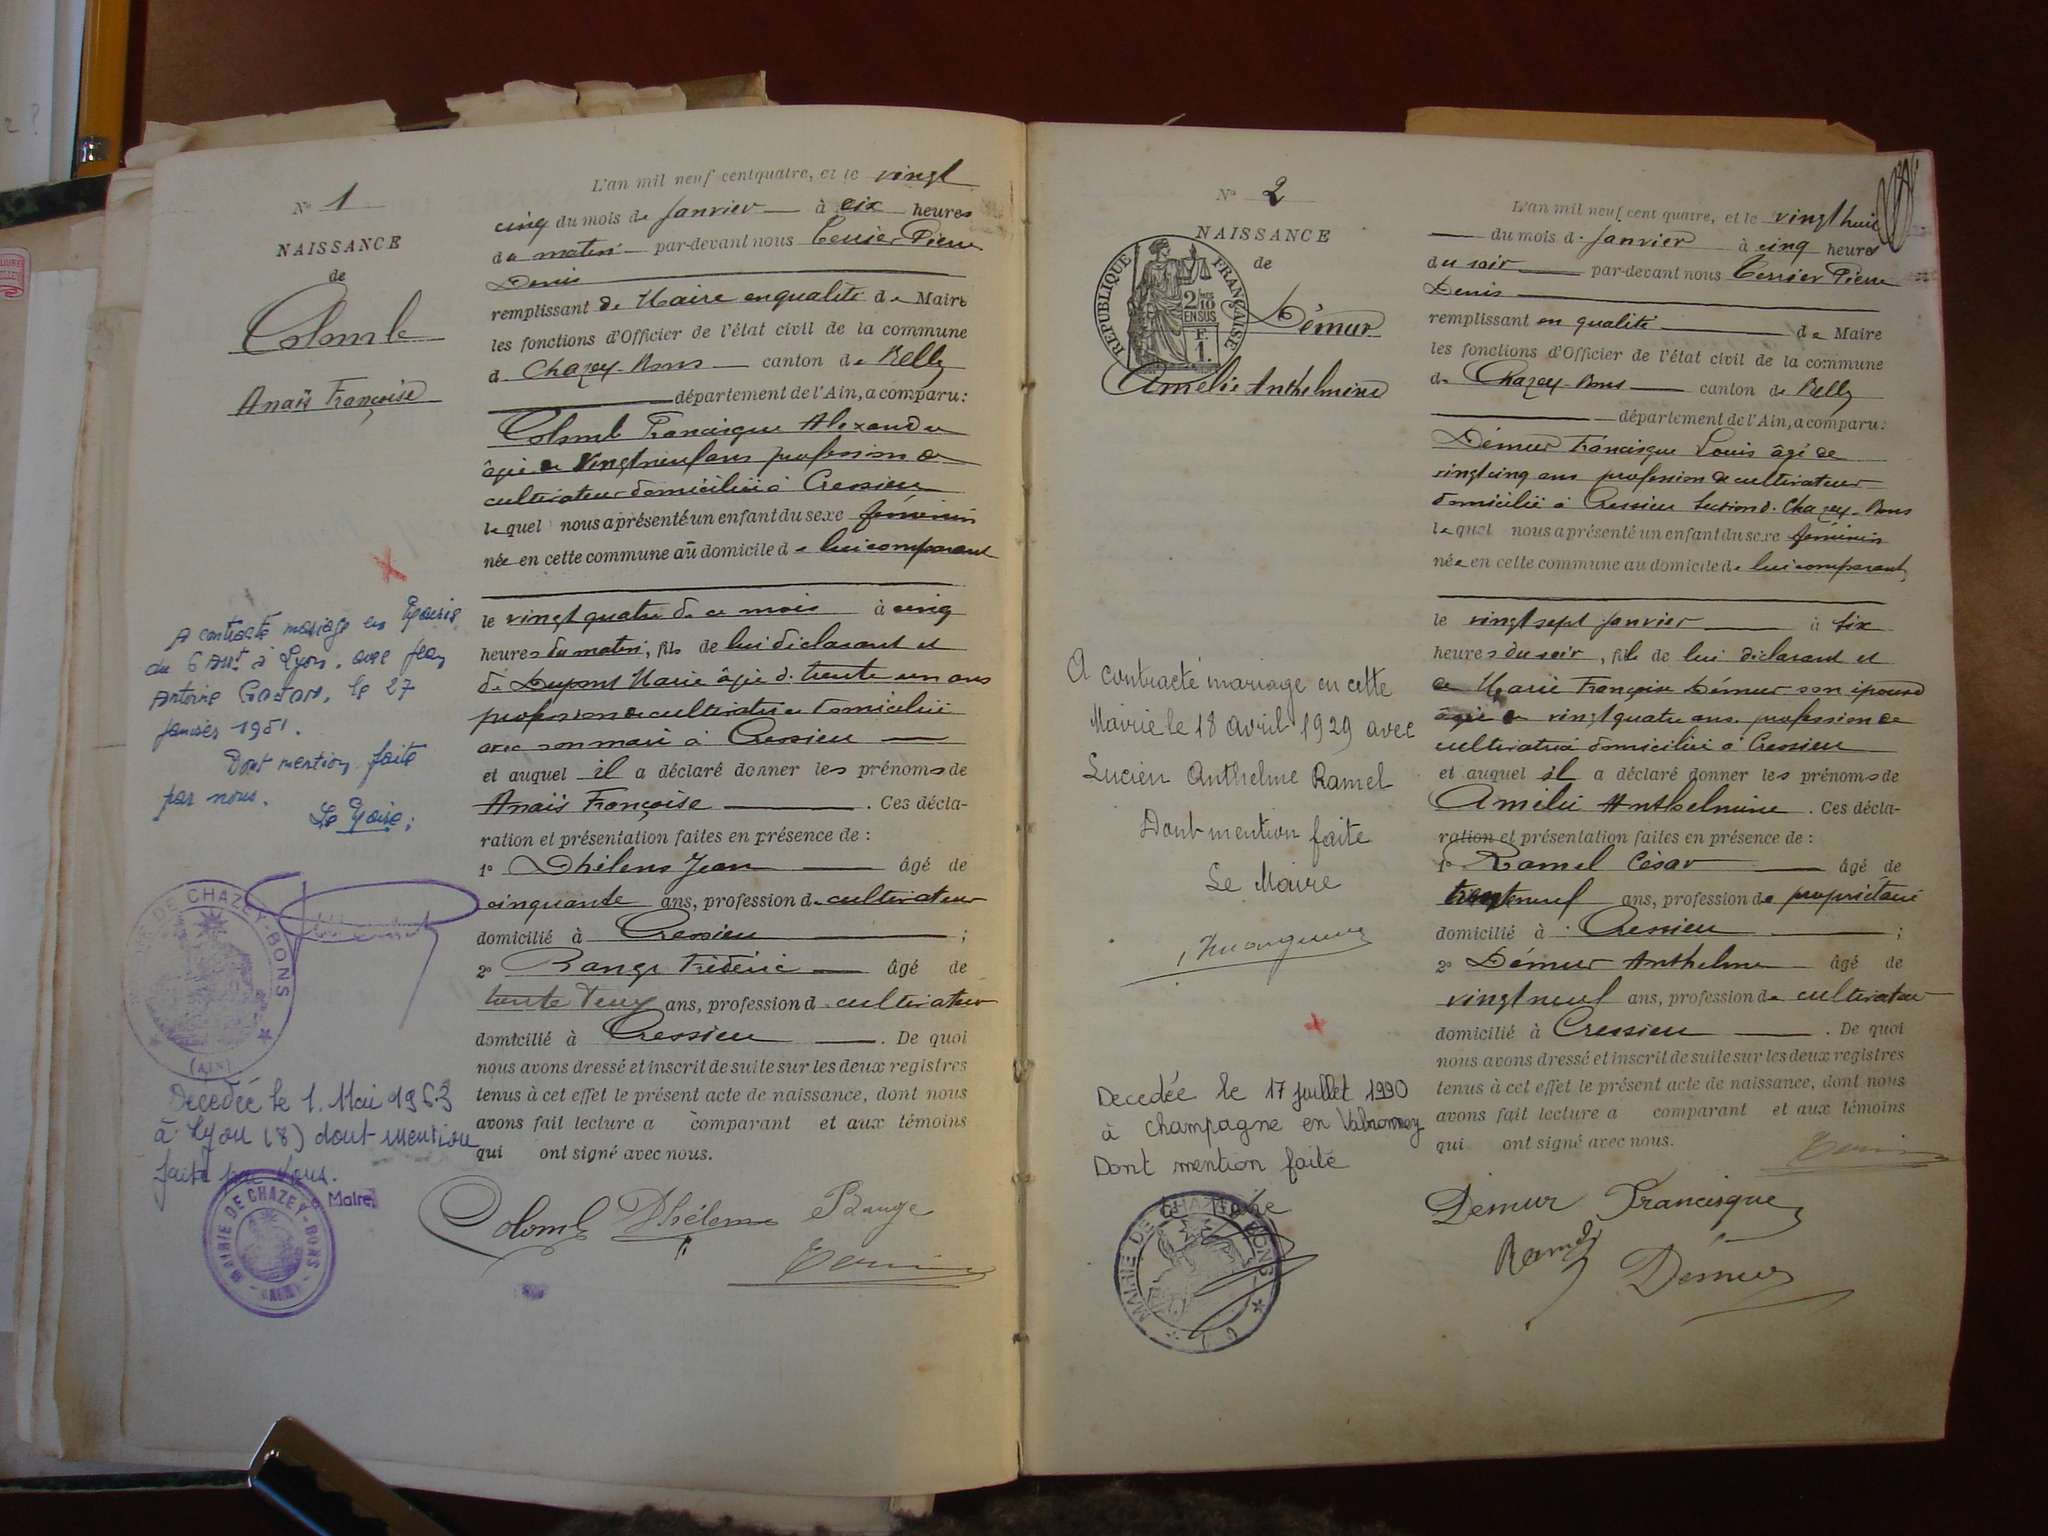 N° 1
NAISSANCE
de
Colomb
Anaïs Françoise
A contracté mariage en Mairie
du 6 Arrt à Lyon, avec Jean
Antoine le 27
janvier 1951.
Dont mention faite
par nous.
Le Maire,
MAIRIE DE CHAZEY-BONS
(AIN)
Decedée le 1. Mai 1963
à Lyon (8) dont mention
faite par nous.
Maire
MAIRIE DE CHAZEY-BONS
L'an mil neuf cent quatre, et le vingt
cinq du mois de janvier à six heures
du matin par-devant nous Terrier Pierre
Denis
remplissant de Maire en qualité de Maire
les fonctions d'Officier de l'état civil de la commune
d Chazey-Bons canton de Belley
département de l'Ain, a comparu:
Colomb Francisque Alexandre
âgé de vingt neuf ans profession de
cultivateur domicilié à Cressieu
lequel nous a présenté un enfant du sexe féminin
née en cette commune au domicile de lui comparant
le vingt quatre de ce mois à cinq
heures du matin, fils de lui déclarant et
de Dupont Marie âgée de trente un ans
profession de cultivatrice domiciliée
avec son mari à Cressieu
et auquel il a déclaré donner les prénoms de
Anaïs Françoise. Ces décla-
ration et présentation faites en présence de :
1° Dhélens Jean âgé de
cinquante ans, profession de cultivateur
domicilié à Cressieu ;
2° Range Fréderic âgé de
trente deux ans, profession d cultivateur
domicilié à Cressieu. De quoi
nous avons dressé et inscrit de suite sur les deux registres
tenus à cet effet le présent acte de naissance, dont nous
avons fait lecture a comparant et aux témoins
qui ont signé avec nous.
Colomb Dhélens Range
Terrier
N° 2
NAISSANCE
de
RÉPUBLIQUE FRANÇAISE
2/10 EN SUS
F. 1.
Démur
Amélie Anthelmine
A contracté mariage en cette
Mairie le 18 avril 1929 avec
Lucien Anthelme Ramel
Dont mention faite
Le Maire
Decedée le 17 juillet 1990
à Champagne en Valromey
Dont mention faite
MAIRIE DE CHAZEY-BONS
L'an mil neuf cent quatre, et le vingt huit
du mois d. janvier à cinq heures
du soir par-devant nous Terrier Pierre
Denis
remplissant en qualité de Maire
les fonctions d'Officier de l'état civil de la commune
de Chazey-Bons canton de Belley
département de l'Ain, a comparu:
Démur Francisque Louis âgé de
vingt cinq ans profession de cultivateur
domicilié à Cressieu section d. Chazey-Bons
lequel nous a présenté un enfant du sexe féminin
née en cette commune au domicile de lui comparant,
le vingt sept janvier à six
heures du soir, fils de lui déclarant et
de Marie Françoise Démur son épouse
âgée de vingt quatre ans profession de
cultivatrice domiciliée à Cressieu
et auquel il a déclaré donner les prénoms de
Amélie Anthelmine. Ces décla-
ration et présentation faites en présence de :
1° Ramel César âgé de
neuf ans, profession de propriétaire
domicilié à Cressieu ;
2° Démur Anthelme âgé de
vingt neuf ans, profession de cultivateur
domicilié à Cressieu. De quoi
nous avons dressé et inscrit de suite sur les deux registres
tenus à cet effet le présent acte de naissance, dont nous
avons fait lecture a comparant et aux témoins
qui ont signé avec nous.
Terrier
Démur Francisque
Ramel
Démur